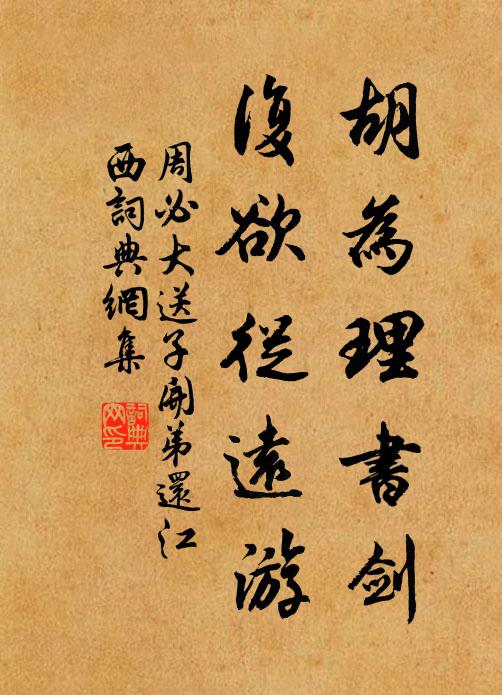 胡為理書劍
復欲從遠游
周必大送子開弟還江
西詞典網集
詞典
网印